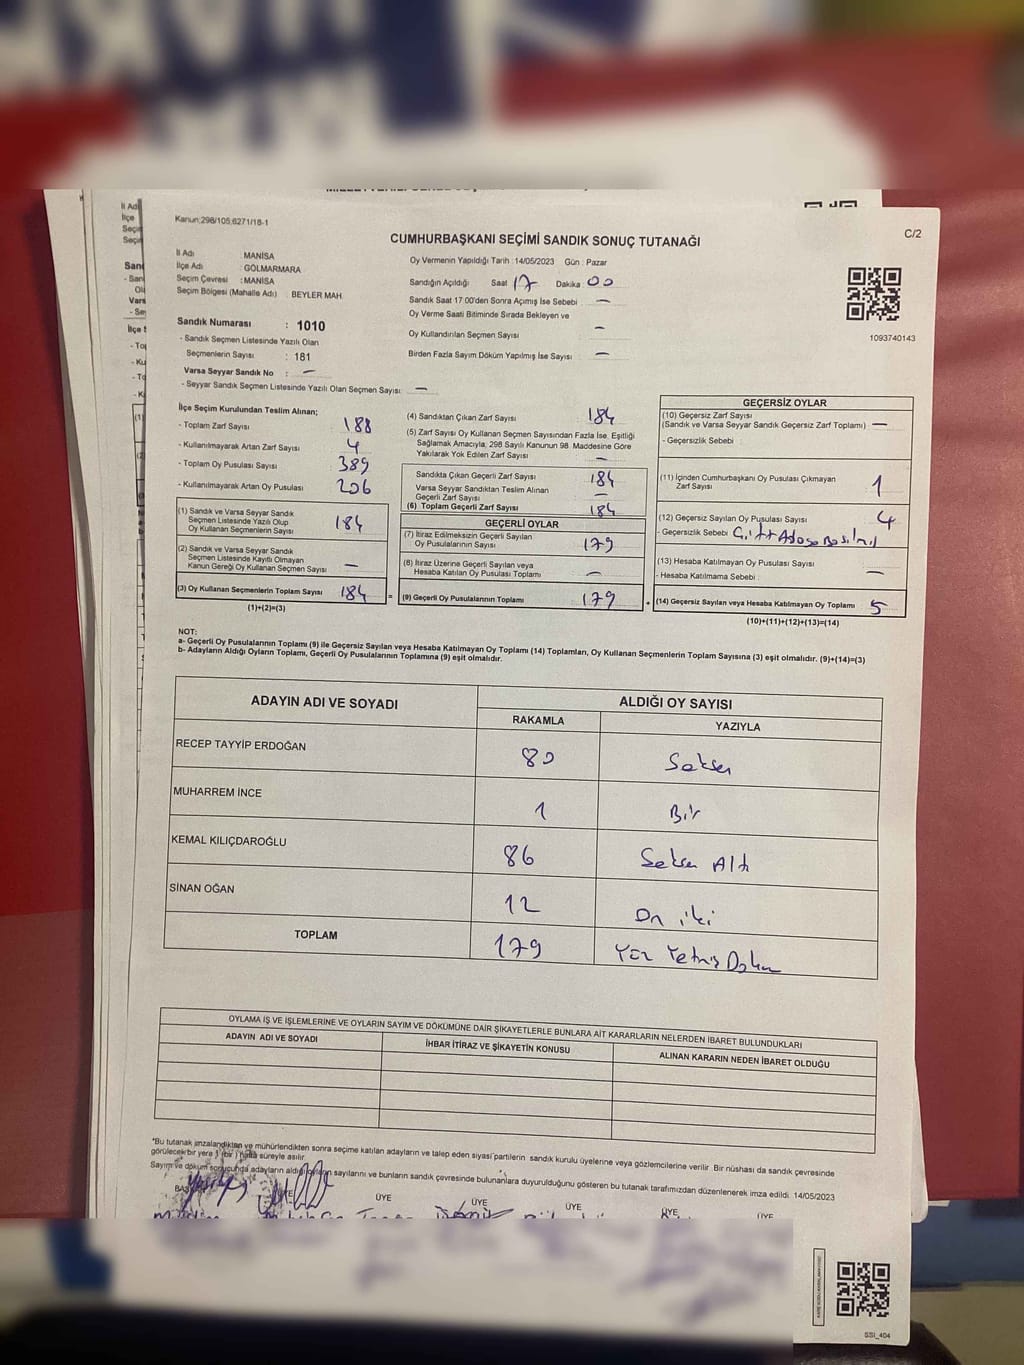 Kanun:298/105,6271/18-1
C/2
CUMHURBAŞKANI SEÇİMİ SANDIK SONUÇ TUTANAĞI
İl Adı : MANİSA
İlçe Adı : GÖLMARMARA
Seçim Çevresi : MANİSA
Seçim Bölgesi (Mahalle Adı) : BEYLER MAH.
Sandık Numarası : 1010
- Sandık Seçmen Listesinde Yazılı Olan
Seçmenlerin Sayısı : 181
Varsa Seyyar Sandık No : —
- Seyyar Sandık Seçmen Listesinde Yazılı Olan Seçmen Sayısı: —
Oy Vermenin Yapıldığı Tarih :14/05/2023 Gün : Pazar
Sandığın Açıldığı Saat 17 Dakika: 00
Sandık Saat 17.00'den Sonra Açımış İse Sebebi : —
Oy Verme Saati Bitiminde Sırada Bekleyen ve
Oy Kullandırılan Seçmen Sayısı —
Birden Fazla Sayım Döküm Yapılmış İse Sayısı : —
1093740143
İlçe Seçim Kurulundan Teslim Alınan;
- Toplam Zarf Sayısı : 188
- Kullanılmayarak Artan Zarf Sayısı : 4
- Toplam Oy Pusulası Sayısı : 389
- Kullanılmayarak Artan Oy Pusulası : 206
(1) Sandık ve Varsa Seyyar Sandık
Seçmen Listesinde Yazılı Olup
Oy Kullanan Seçmenlerin Sayısı : 184
(2) Sandık ve Varsa Seyyar Sandık
Seçmen Listesinde Kayıtlı Olmayan
Kanun Gereği Oy Kullanan Seçmen Sayısı : —
(3) Oy Kullanan Seçmenlerin Toplam Sayısı : 184
(1)+(2)=(3)
(4) Sandıktan Çıkan Zarf Sayısı : 184
(5) Zarf Sayısı Oy Kullanan Seçmen Sayısından Fazla İse, Eşitliği
Sağlamak Amacıyla, 298 Sayılı Kanunun 98. Maddesine Göre
Yakılarak Yok Edilen Zarf Sayısı : —
Sandıkta Çıkan Geçerli Zarf Sayısı : 184
Varsa Seyyar Sandıktan Teslim Alınan
Geçerli Zarf Sayısı : —
(6) Toplam Geçerli Zarf Sayısı : 184
GEÇERLİ OYLAR
(7) İtiraz Edilmeksizin Geçerli Sayılan
Oy Pusulalarının Sayısı : 179
(8) İtiraz Üzerine Geçerli Sayılan veya
Hesaba Katılan Oy Pusulası Toplamı : —
(9) Geçerli Oy Pusulalarının Toplamı : 179
GEÇERSİZ OYLAR
(10) Geçersiz Zarf Sayısı
(Sandık ve Varsa Seyyar Sandık Geçersiz Zarf Toplamı) : —
- Geçersizlik Sebebi :
(11) İçinden Cumhurbaşkanı Oy Pusulası Çıkmayan
Zarf Sayısı : 1
(12) Geçersiz Sayılan Oy Pusulası Sayısı : 4
- Geçersizlik Sebebi :
(13) Hesaba Katılmayan Oy Pusulası Sayısı :
- Hesaba Katılmama Sebebi : —
(14) Geçersiz Sayılan veya Hesaba Katılmayan Oy Toplamı : 5
(10)+(11)+(12)+(13)=(14)
NOT:
a- Geçerli Oy Pusulalarının Toplamı (9) ile Geçersiz Sayılan veya Hesaba Katılmayan Oy Toplamı (14) Toplamları, Oy Kullanan Seçmenlerin Toplam Sayısına (3) eşit olmalıdır. (9)+(14)=(3)
b- Adayların Aldığı Oyların Toplamı, Geçerli Oy Pusulalarının Toplamına (9) eşit olmalıdır.
ADAYIN ADI VE SOYADI ALDIĞI OY SAYISI
RAKAMLA YAZIYLA
RECEP TAYYİP ERDOĞAN 80 Seksen
MUHARREM İNCE 1 Bir
KEMAL KILIÇDAROĞLU 86 Seksen Altı
SİNAN OĞAN 12 On iki
TOPLAM 179 Yüz Yetmiş Dokuz
OYLAMA İŞ VE İŞLEMLERİNE VE OYLARIN SAYIM VE DÖKÜMÜNE DAİR ŞİKAYETLERLE BUNLARA AİT KARARLARIN NELERDEN İBARET BULUNDUKLARI
ADAYIN ADI VE SOYADI İHBAR İTİRAZ VE ŞİKAYETİN KONUSU ALINAN KARARIN NEDEN İBARET OLDUĞU
*Bu tutanak imzalandıktan ve mühürlendikten sonra seçime katılan adayların ve talep eden siyasi partilerin sandık kurulu üyelerine veya gözlemcilerine verilir. Bir nüshası da sandık çevresinde
görülecek bir yere 1 (bir) hafta süreyle asılır.
Sayım ve döküm sonucunda adayların aldığı oyların sayılarını ve bunların sandık çevresinde bulunanlara duyurulduğunu gösteren bu tutanak tarafımızdan düzenlenerek imza edildi. 14/05/2023
ÜYE ÜYE ÜYE ÜYE ÜYE
SSİ_404